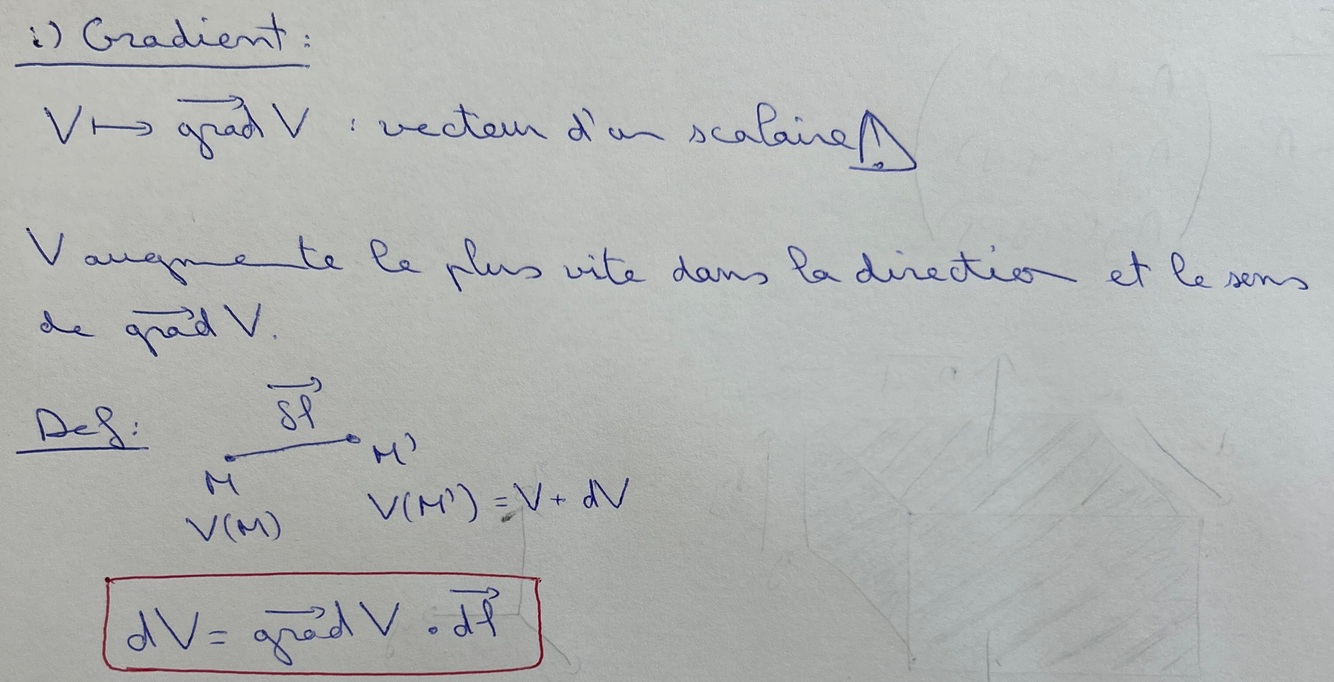 i) Gradient :
V ↦ \overrightarrow{grad} V : vecteur d'un scalaire ⚠
V augmente le plus vite dans la direction et le sens
de \overrightarrow{grad} V.
Def :
\overrightarrow{δl}
M M'
V(M) V(M') = V + dV
dV = \overrightarrow{grad} V . \overrightarrow{dl}